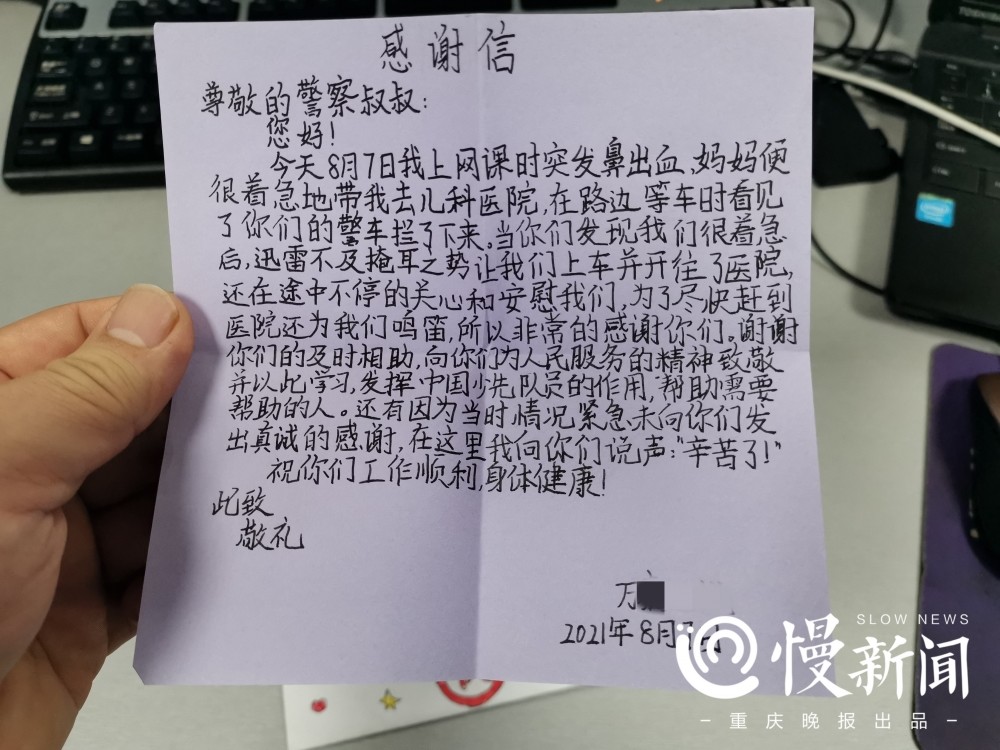 感谢信
尊敬的警察叔叔:
您好!
今天8月7日我上网课时突发鼻出血,妈妈便
很着急地带我去儿科医院,在路边等车时看见
了你们的警车拦了下来。当你们发现我们很着急
后,迅雷不及掩耳之势让我们上车并开往了医院,
还在途中不停的关心和安慰我们,为了尽快赶到
医院还为我们鸣笛,所以非常的感谢你们。谢谢
你们的及时相助,向你们为人民服务的精神致敬
并以此学习,发挥中国少先队员的作用,帮助需要
帮助的人。还有因为当时情况紧急未向你们发
出真诚的感谢,在这里我向你们说声:"辛苦了!"
祝你们工作顺利,身体健康!
此致
敬礼
万
2021年8月
SLOW NEWS
慢新闻
-重庆晚报出品-